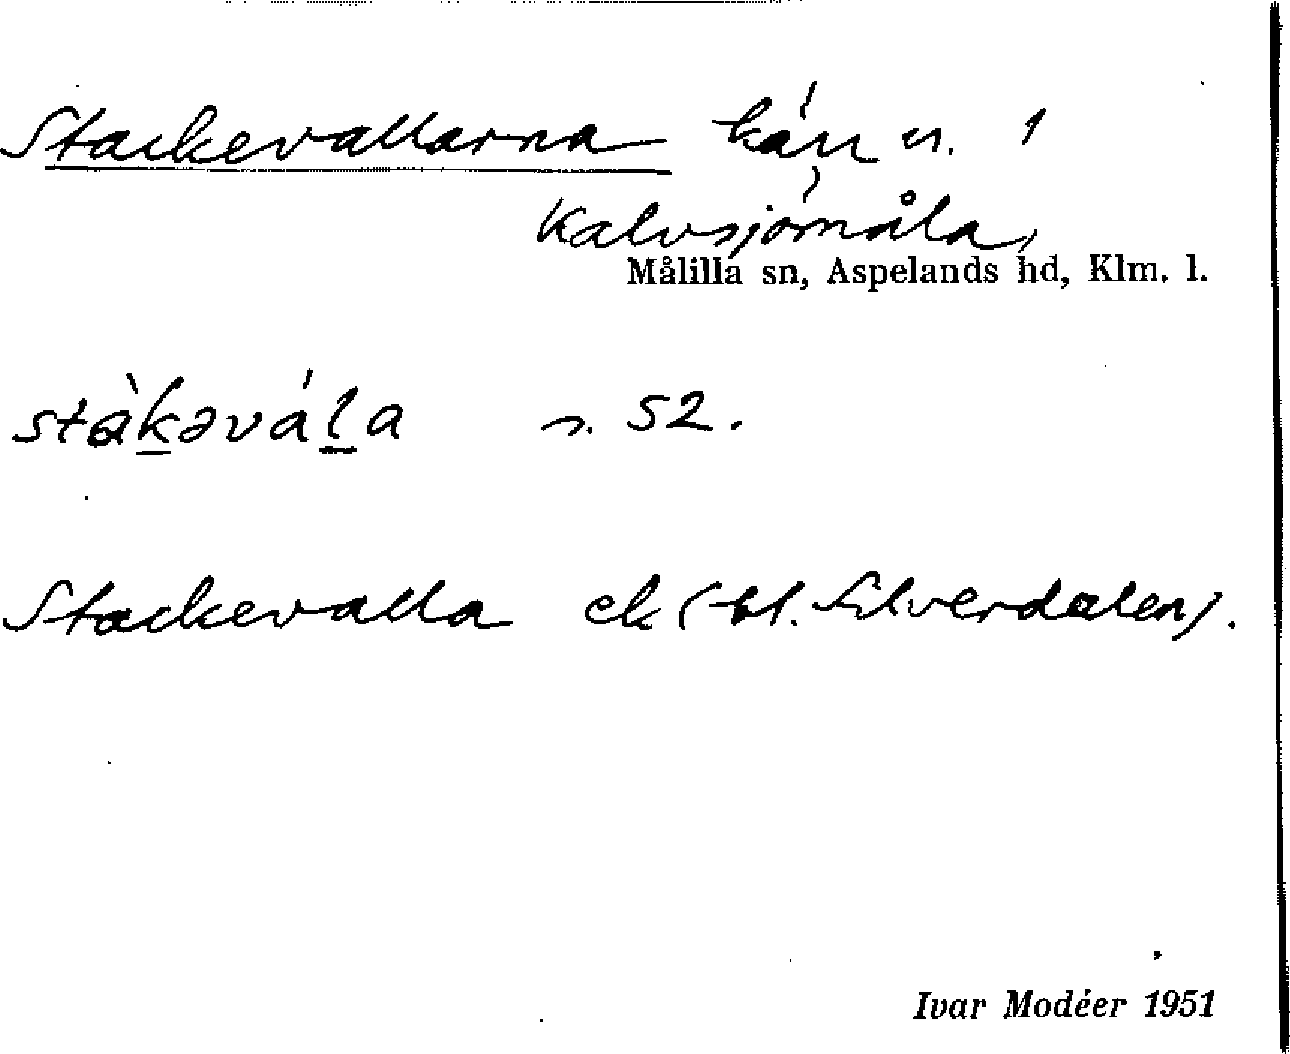 Stackevallarna kärr n. 1
Kalvsjömåla,
Målilla sn, Aspelands hd, Klm. l.
stàkəvála n. 52.
Stackevalla ek (bl. Silverdalen).
Ivar Modéer 1951